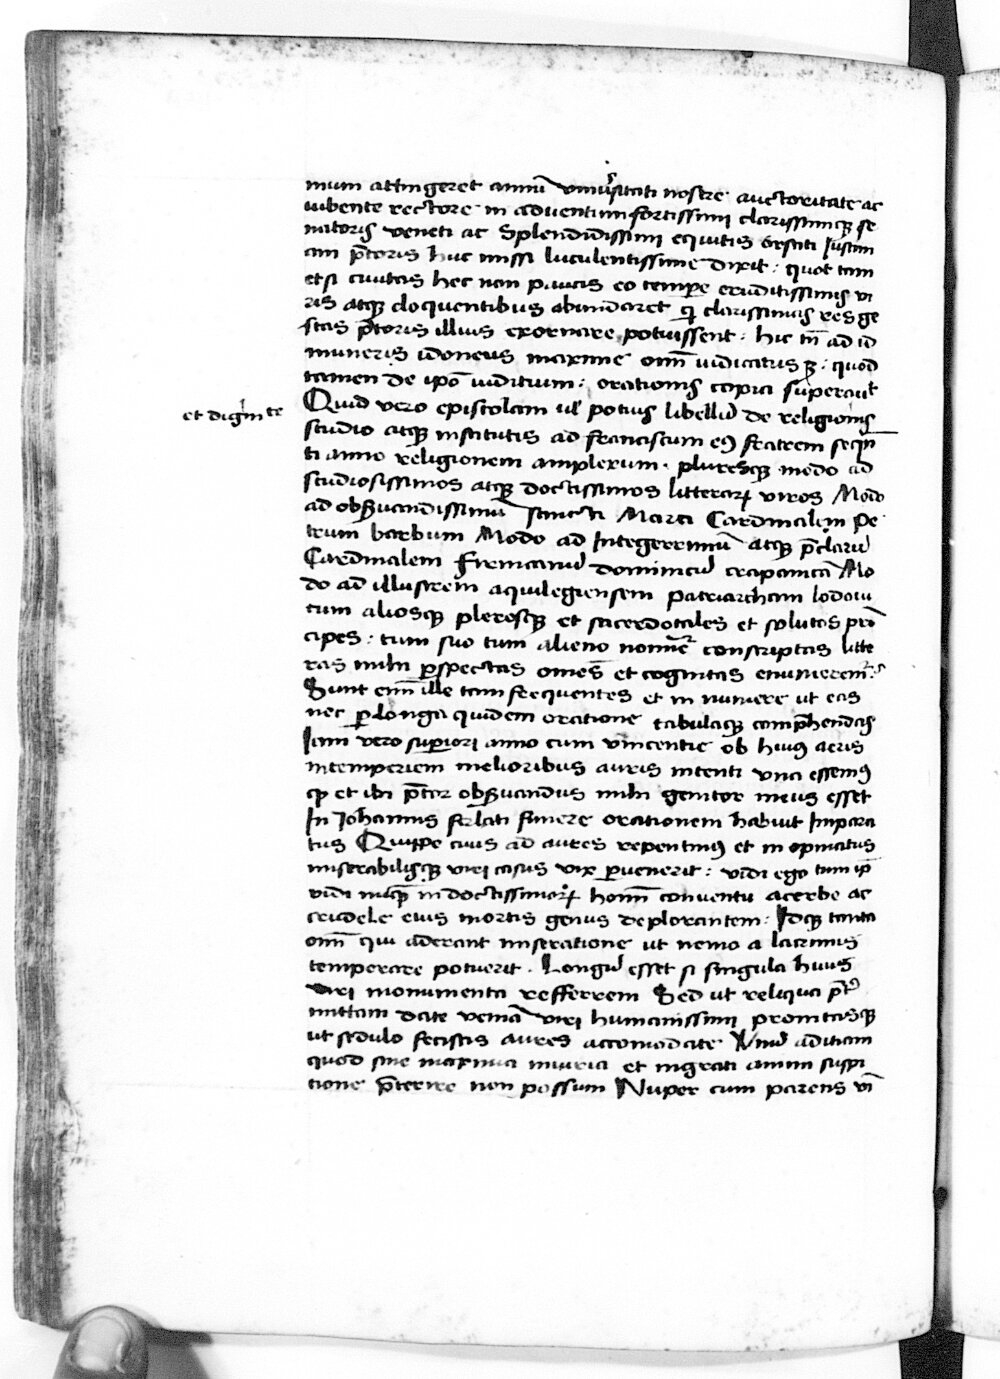 mum attingeret annū univ̓sitati nostre auctoritate ac
iubente rectore in adventum fortissimi clarissimiqȝ se
natoris veneti ac Splendidissimi equitis Orsati Iustini
ani p̄toris huc missi luculentissime dixit : quot tam
etsi civitas hec non paucis eo tempe eruditissimis vi
ris atqȝ eloquentibus abundaret q̄ clarissimas res ge
stas p̄toris illius exornare potuissent : hic tn̄ ad id
muneris idoneus maxime om̄ iudicatus ȝ : quod
tamen de ipō iuditium : orationis copia superavit
Quid vero epistolam ul̓ potius libellū de religionis
et dignite
studio atqȝ institutis ad franciscum eiꝰ fratrem sequn̄
ti anno religionem amplexum . pluresqȝ modo ad
studiosissimos atqȝ doctissimos litterarꝝ viros Modo
ad obs̓vandissimū sancti Marci Cardinalem Pe
trum barbum Modo ad Integerrimū atqȝ p̄clarū
Cardinalem firmanū dominicū crapanicā Mo
do ad illustrem aquilegiensem patriarcham lodovi
cum aliosqȝ plerosqȝ et sacerdotales et solutos prī
cipes : tum suo tum alieno nomīe conscriptas litte
ras mihi p̱spectas omēs et cognitas enumerem̄ ?
Sunt enī ille tam frequentes et in numere ut eas
nec p̱longa quidem oratione tabulaqȝ comp̄hendas
Iam vero sup̱iori anno cum vincentie ob huiꝰ aeris
intemperiem melioribus auris intenti una essemꝰ
qȝ et ibi p̄tor obs̓vandus mihi genitor meus esset
In Iohannis ferlati funere orationem habuit Impara
tus Quippe cuius ad aures repentinꝰ et in opinatus
miserabilisqȝ viri casus vix p̱venerit : vidi ego tum ip̄
vidi inqȝ in doctissimorꝝ homī conventu acerbe ac
crudele eius mortis genus deplorantem : Idqȝ tanta
om̄ qui aderant miseratione ut nemo a lacrimis
temperare potuerit . Longū esset si singula huius
viri monumenta refferrem Sed ut reliqua p̄t̓
mittam date veniā viri humanissimi promtasqȝ
ut sedulo fecistis aures accomodate Vnū aditiam
quod sine maxima iniuria et ingrati animi suspi
tione p̄terire non possum Nuper cum parens vī